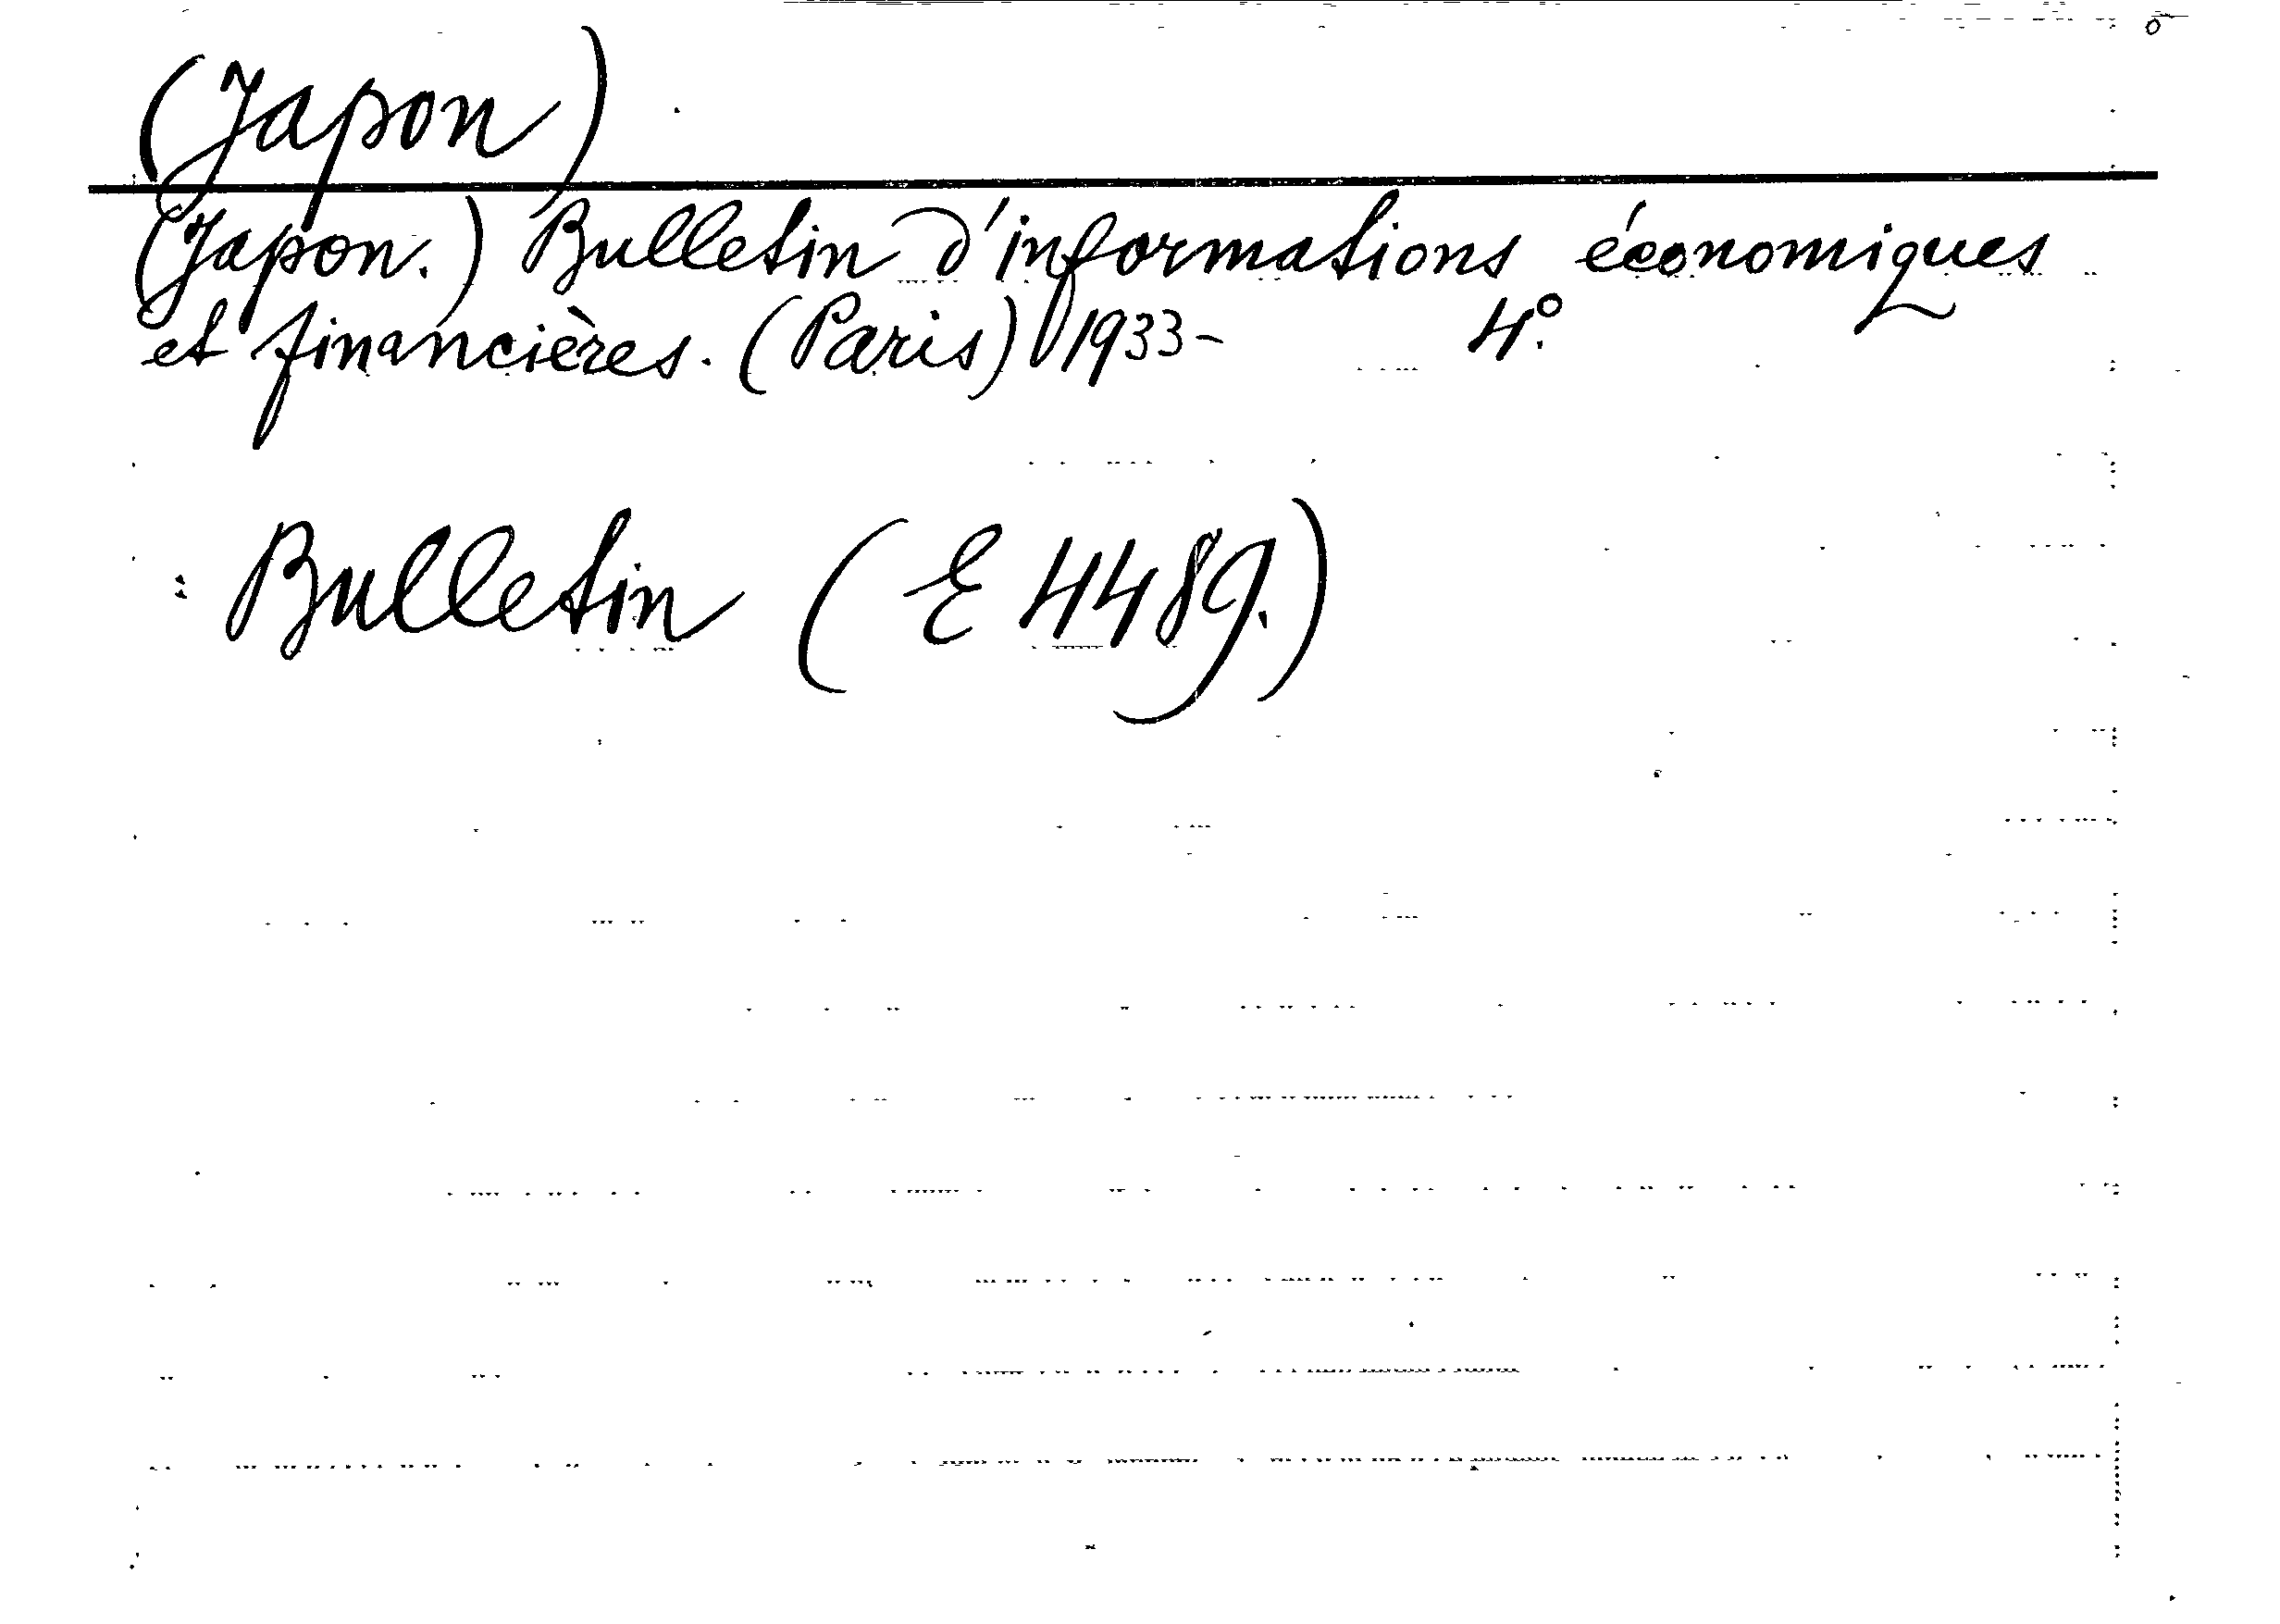 (Japon)
(Japon.) Bulletin d'informations économiques
et financières. (Paris) 1933- 4°.
Bulletin (E 4489.)